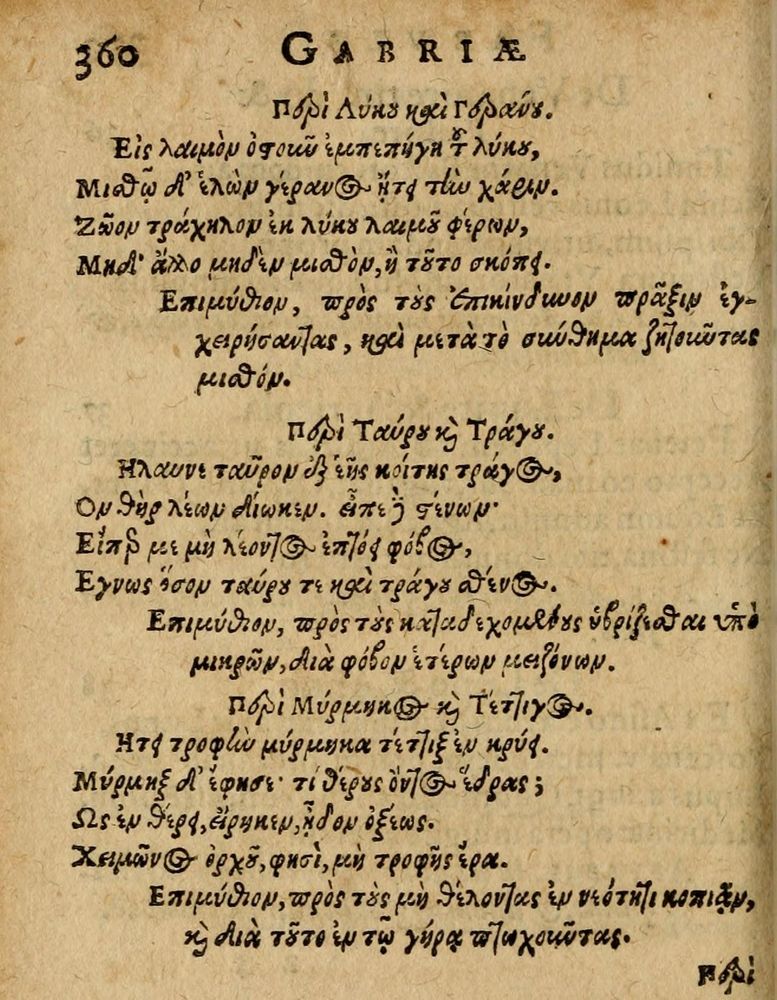 360 GABRIÆ
Περὶ Λύκου καὶ Γεράνου.
Εἰς λαιμὸν ὀστοῦν ἐμπεπήγη τοῦ λύκου,
Μισθῷ δ' ἑλὼν γέρανος ᾔτει τὴν χάριν.
Ζῶον τράχηλον ἐκ λύκου λαιμοῦ φέρων,
Μηδ' ἄλλο μηδὲν μισθὸν, ἢ τοῦτο σκόπει.
Επιμύθιον, πρὸς τοὺς ἐπικίνδυνον πρᾶξιν ἐγ-
χειρήσαντας, καὶ μετὰ τὸ σκύθημα ζητοῦντας
μισθόν.
Περὶ Ταύρου καὶ Τράγου.
Ηλαυνε ταῦρον ἐξ ἑῆς κοίτης τράγος,
Ον θὴρ λέων δίωκεν. εἶπε δὲ στένων·
Εἴπερ με μὴ λέοντος ἐπτόει φόβος,
Εγνως ὅσον ταύρου τε καὶ τράγου σθένος.
Επιμύθιον, πρὸς τοὺς καταδεχομένους ὑβρίζεσθαι ὑπὸ
μικρῶν, διὰ φόβον ἑτέρων μειζόνων.
Περὶ Μύρμηκος καὶ Τέττιγος.
Ητει τροφὴν μύρμηκα τέττιξ ἐν κρύει.
Μύρμηξ δ' ἔφησε· τί θέρους ὄντος ἔδρας;
Ως ἐν θέρει, εἴρηκεν, ᾖδον ὀξέως.
Χειμῶνος ὀρχοῦ, φησὶ, μὴ τροφῆς ἔρα.
Επιμύθιον, πρὸς τοὺς μὴ θέλοντας ἐν νεότητι κοπιᾷν,
καὶ διὰ τοῦτο ἐν τῷ γήρᾳ πτωχοῦντας.
Περὶ